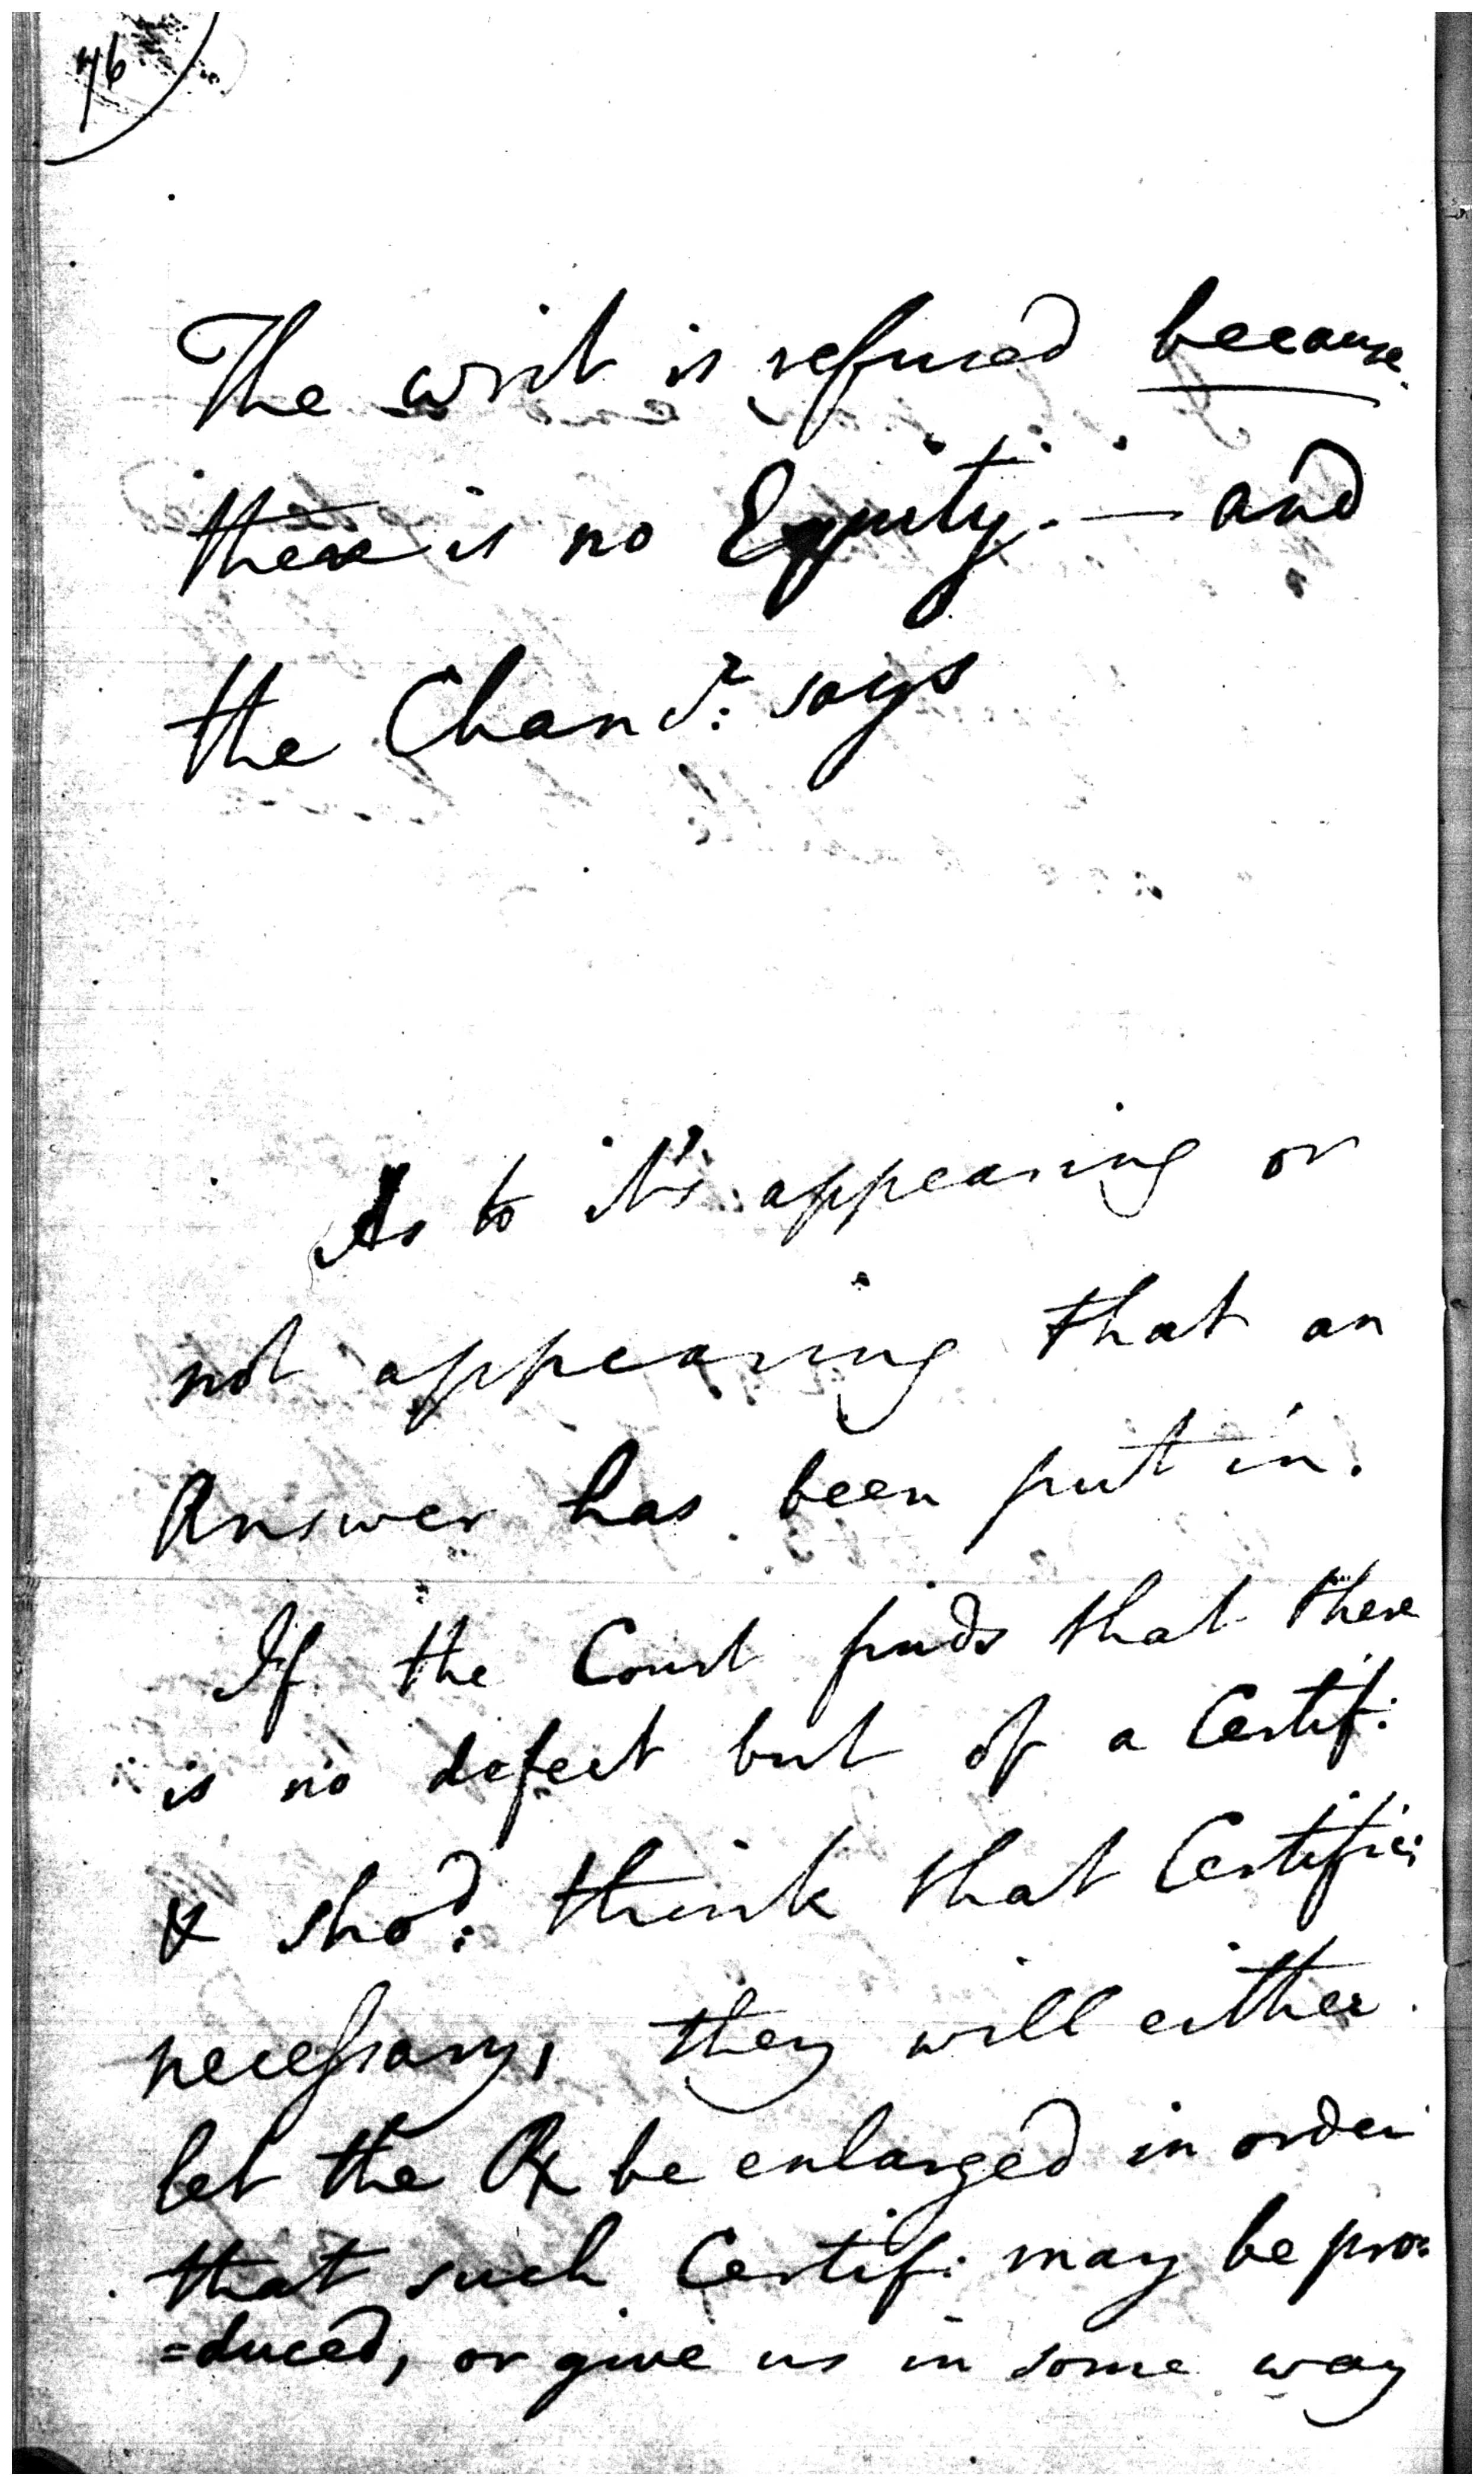 76
The writ is refused because
there is no Equity. — and
the Chanr: says
As to it's appearing or
not appearing that an
Answer has been put in.
If the Court finds that there
is no defect but of a Certif:
& shod: think that Certific:
necessary, they will either
let the R be enlarged in order
that such Certif: may be pro=
=duced, or give us in some way